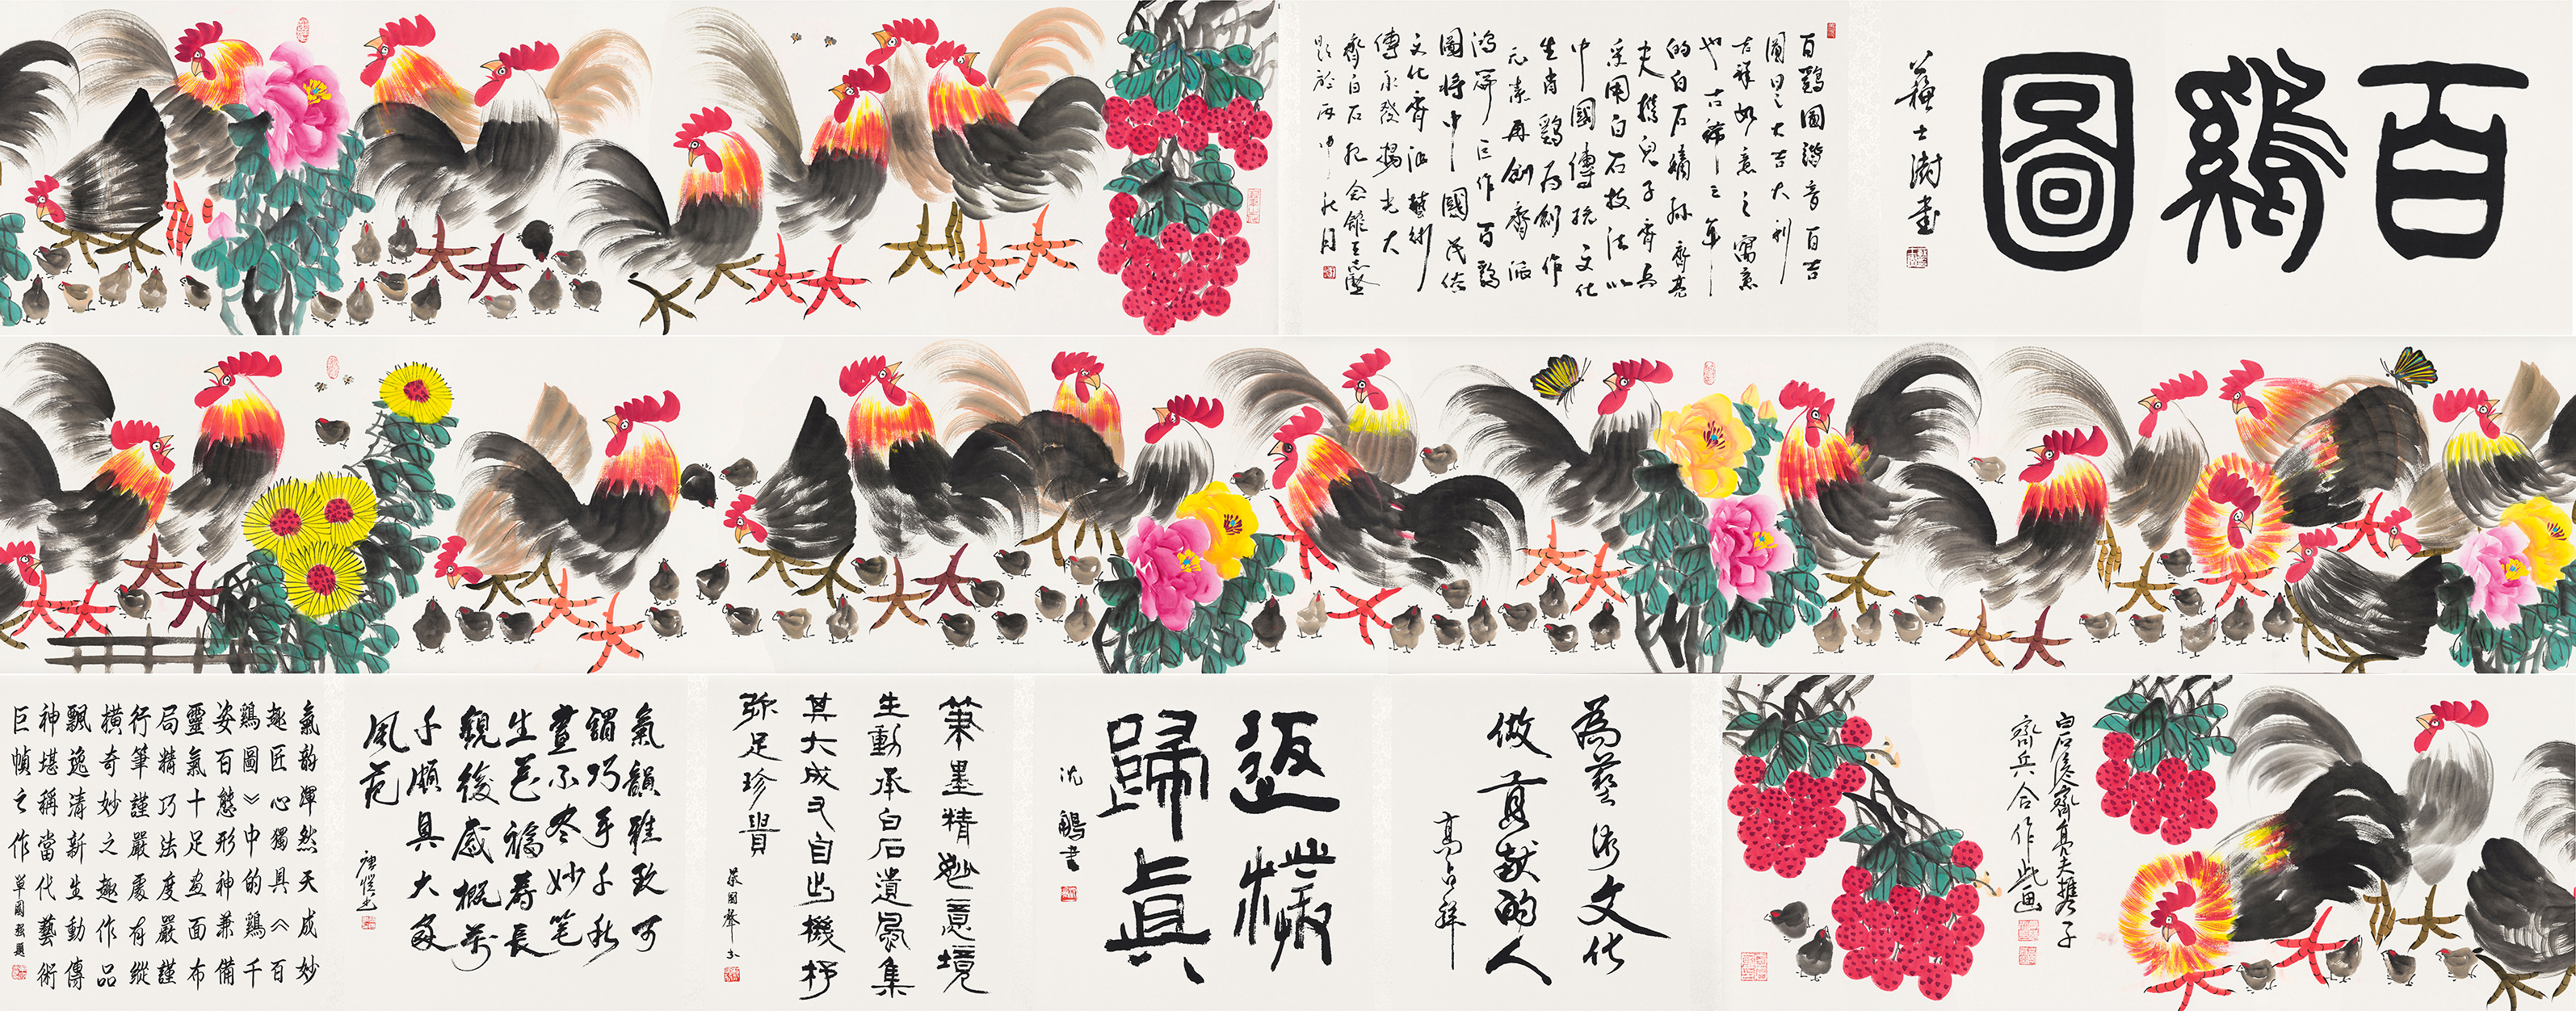 百鷄圖
蘇士澍書
百鷄圖諧音百吉
圖曰之大吉大利
吉祥如意之寓意
也古稀之年
的白石嫡孫齊亮
夫携兒子齊兵
采用白石技法以
中國傳統文化
生肖鷄為創作
元素再創齊派
鴻篇巨作百鷄
圖將中國民俗
文化齊派藝術
傳承發揚光大
齊白石紀念館
題於丙申秋月
白石後裔齊亮夫携子
齊兵合作此画
為藝術文化
做貢獻的人
高占祥
返樸
歸真
沈鵬書
筆墨精妙意境
生動承白石遺風集
其大成又自出機杼
弥足珍貴
氣韻雅致可
謂巧手千秋
畫不尽妙笔
生花福寿長
觀後感概萬
千頗具大家
風范
唐愷書
氣韵渾然天成妙
趣匠心獨具《百
鷄圖》中的鷄千
姿百態形神兼備
靈氣十足画面布
局精巧法度嚴謹
行筆謹嚴處有縱
橫奇妙之趣作品
飄逸清新生動傳
神堪稱當代藝術
巨幀之作
單國强題